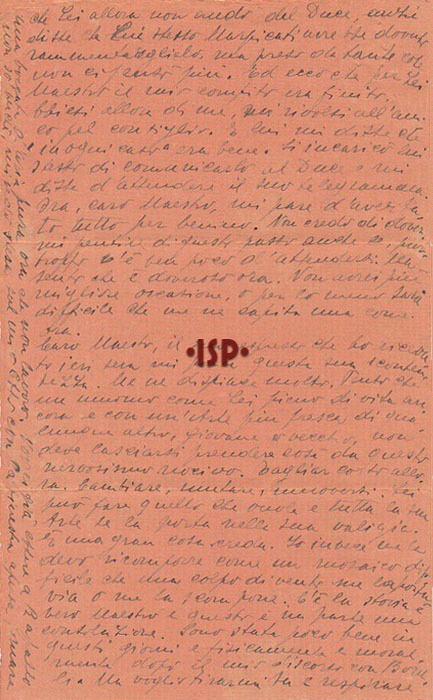 che Lei allora non andò dal Duce, anzi
disse che Lui stesso Marpicati avrebbe dovuto
rammentarglielo, ma preso da tante cose
non ci pensò più. Ed ecco che per Lei
Maestro il mio compito era finito,
allora di me, mi rivolsi all'ami-
co pel consiglio. E lui mi disse che
in ogni caso era bene. Si incaricò lui
stesso di comunicarlo al Duce e mi
disse d'attendere il suo telegramma.
Ora, caro Maestro, mi pare d'aver fat-
to tutto per benino. Non credo di dover-
mi pentire di questo passo anche se, pur-
troppo c'è ben poco d'attendersi. Ma
sento che è doveroso ora. Non avrei più
migliore occasione, o per lo meno sarà
difficile che me ne capiti una come
ora.
Caro Maestro, il che ho ricevu-
to ieri sera mi questa sua scontent-
ezza. Me ne dispiace molto. Penso che
un uomo come Lei pieno di vita an-
cora e con un'Arte più fresca di qua-
lunque altro, giovane o vecchio, non
deve lasciarsi prendere così da questo
nervosismo nocivo. Tagliar corto allo-
ra. Cambiare, mutare, muoversi. Lei
può fare quello che vuole e tutta la sua
Arte se la porta nelle sua valigia.
È una gran cosa creda. Io invece me la
devo ricomporre come un mosaico dif-
ficile che una colpo di vento me la porta
via o me la scompone. C'è la storia è
vero Maestro e questo è in parte una
consolazione. Sono stata poco bene in
questi giorni e fisicamente e moral-
mente dopo il mio discorso con
Ma voglio tirarmi su e respirare
·ISP·